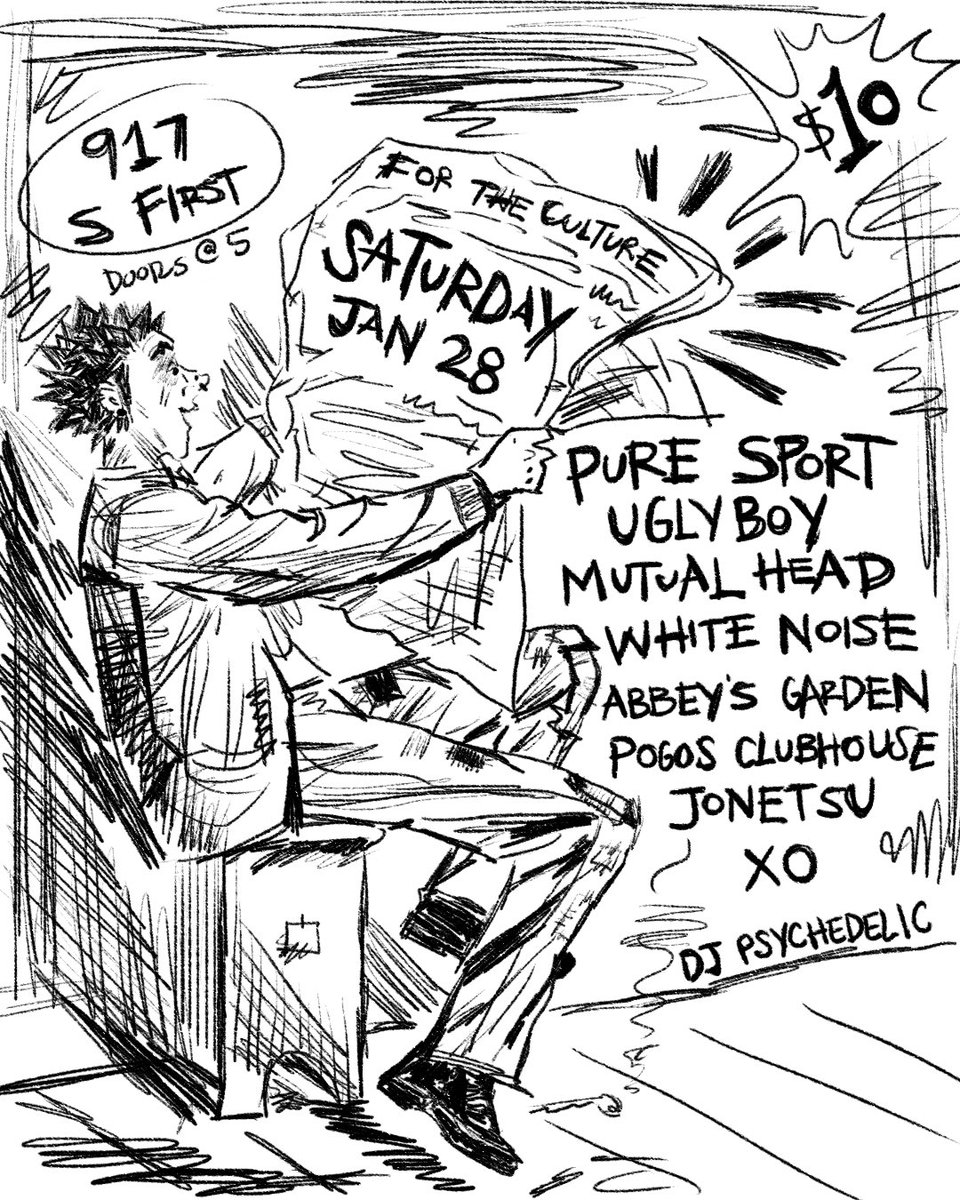 917
S FIRST
DOORS @ 5
$10
FOR THE CULTURE
SATURDAY
JAN 28
PURE SPORT
UGLY BOY
MUTUAL HEAD
WHITE NOISE
ABBEY'S GARDEN
POGOS CLUBHOUSE
JONETSU
XO
DJ PSYCHEDELIC